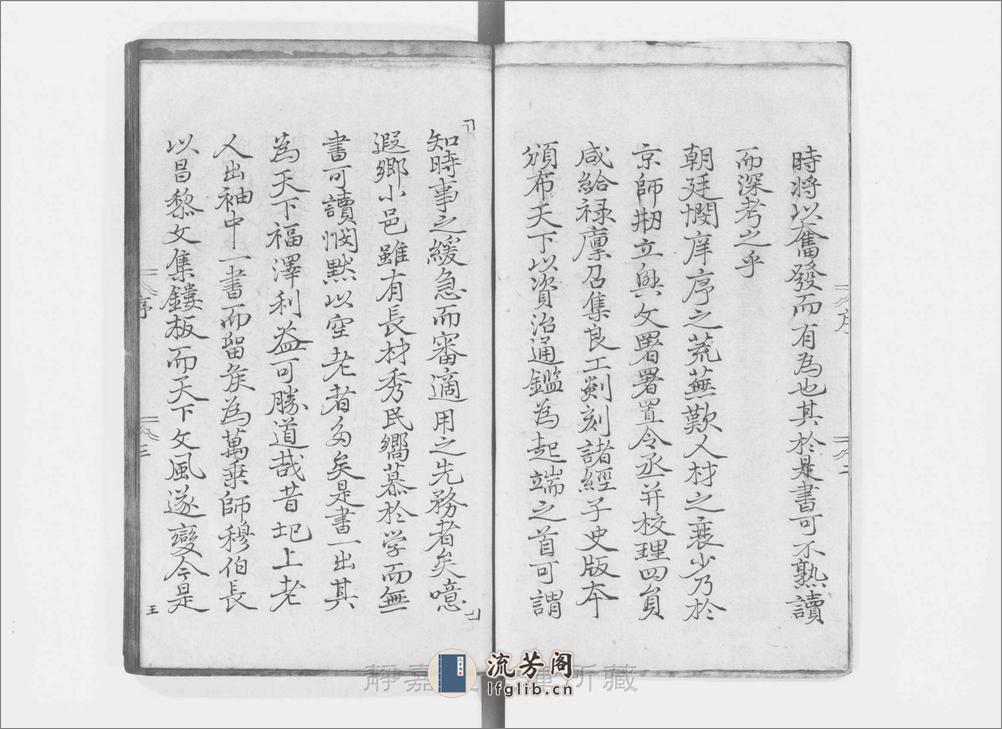 時将以奮發而有為也其於是書可不熟讀
而深考之乎
朝廷憫庠序之荒蕪歎人材之衰少乃於
京師刱立興文署署置令丞并校理四員
咸給禄廪召集良工剡刻諸經子史版本
頒布天下以資治通鑑為起端之首可謂
知時事之緩急而審適用之先務者矣噫
遐鄉小邑雖有長材秀民嚮慕於学而無
書可讀憫默以空老者多矣是書一出其
為天下福澤利益可勝道哉昔圯上老
人出袖中一書而留矦為萬乘師穆伯長
以昌黎文集鏤板而天下文風遂變今是
序
三
王
流芳阁
lfglib.cn
靜嘉 所藏